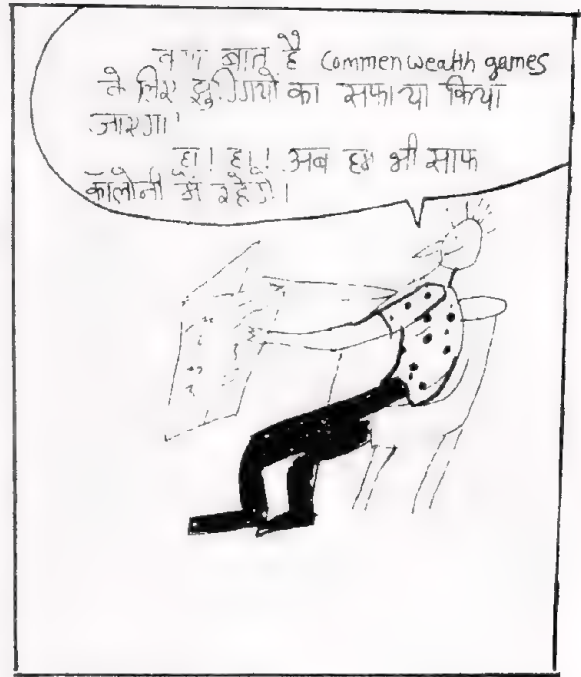 बात है Commenwealth games
के लिए झुग्गियों का सफाया किया
जाएगा
हा! हा! अब हम भी साफ
कॉलोनी में रहेंगे।